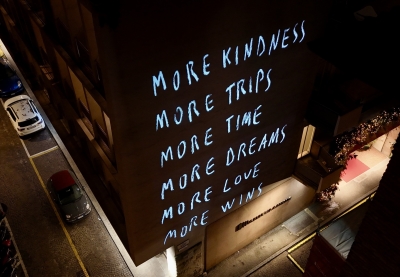 MORE KINDNESS
MORE TRIPS
MORE TIME
MORE DREAMS
MORE LOVE
MORE WINS